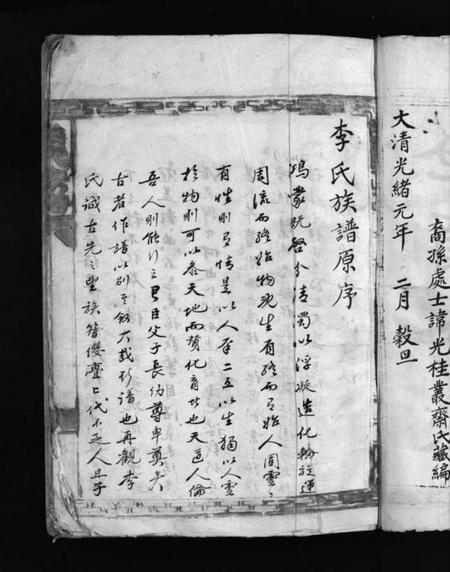 裔孫處士諱光桂叢齋氏藏編
大清光緒元年 二月 穀旦
李氏族譜原序
鴻蒙既啓分清濁以浮凝造化輪旋運
周流而終始物死生有終而有始人固靈
有性則有情是以人本二五以生獨以人靈
於物則可以参天地而贊化育者也天道人倫
吾人則能行之君臣父子長幼尊卑奠矣
古者作譜以別其餘大哉斯譜也再觀李
氏誠古先之望族簪纓疊々代不乏人且子